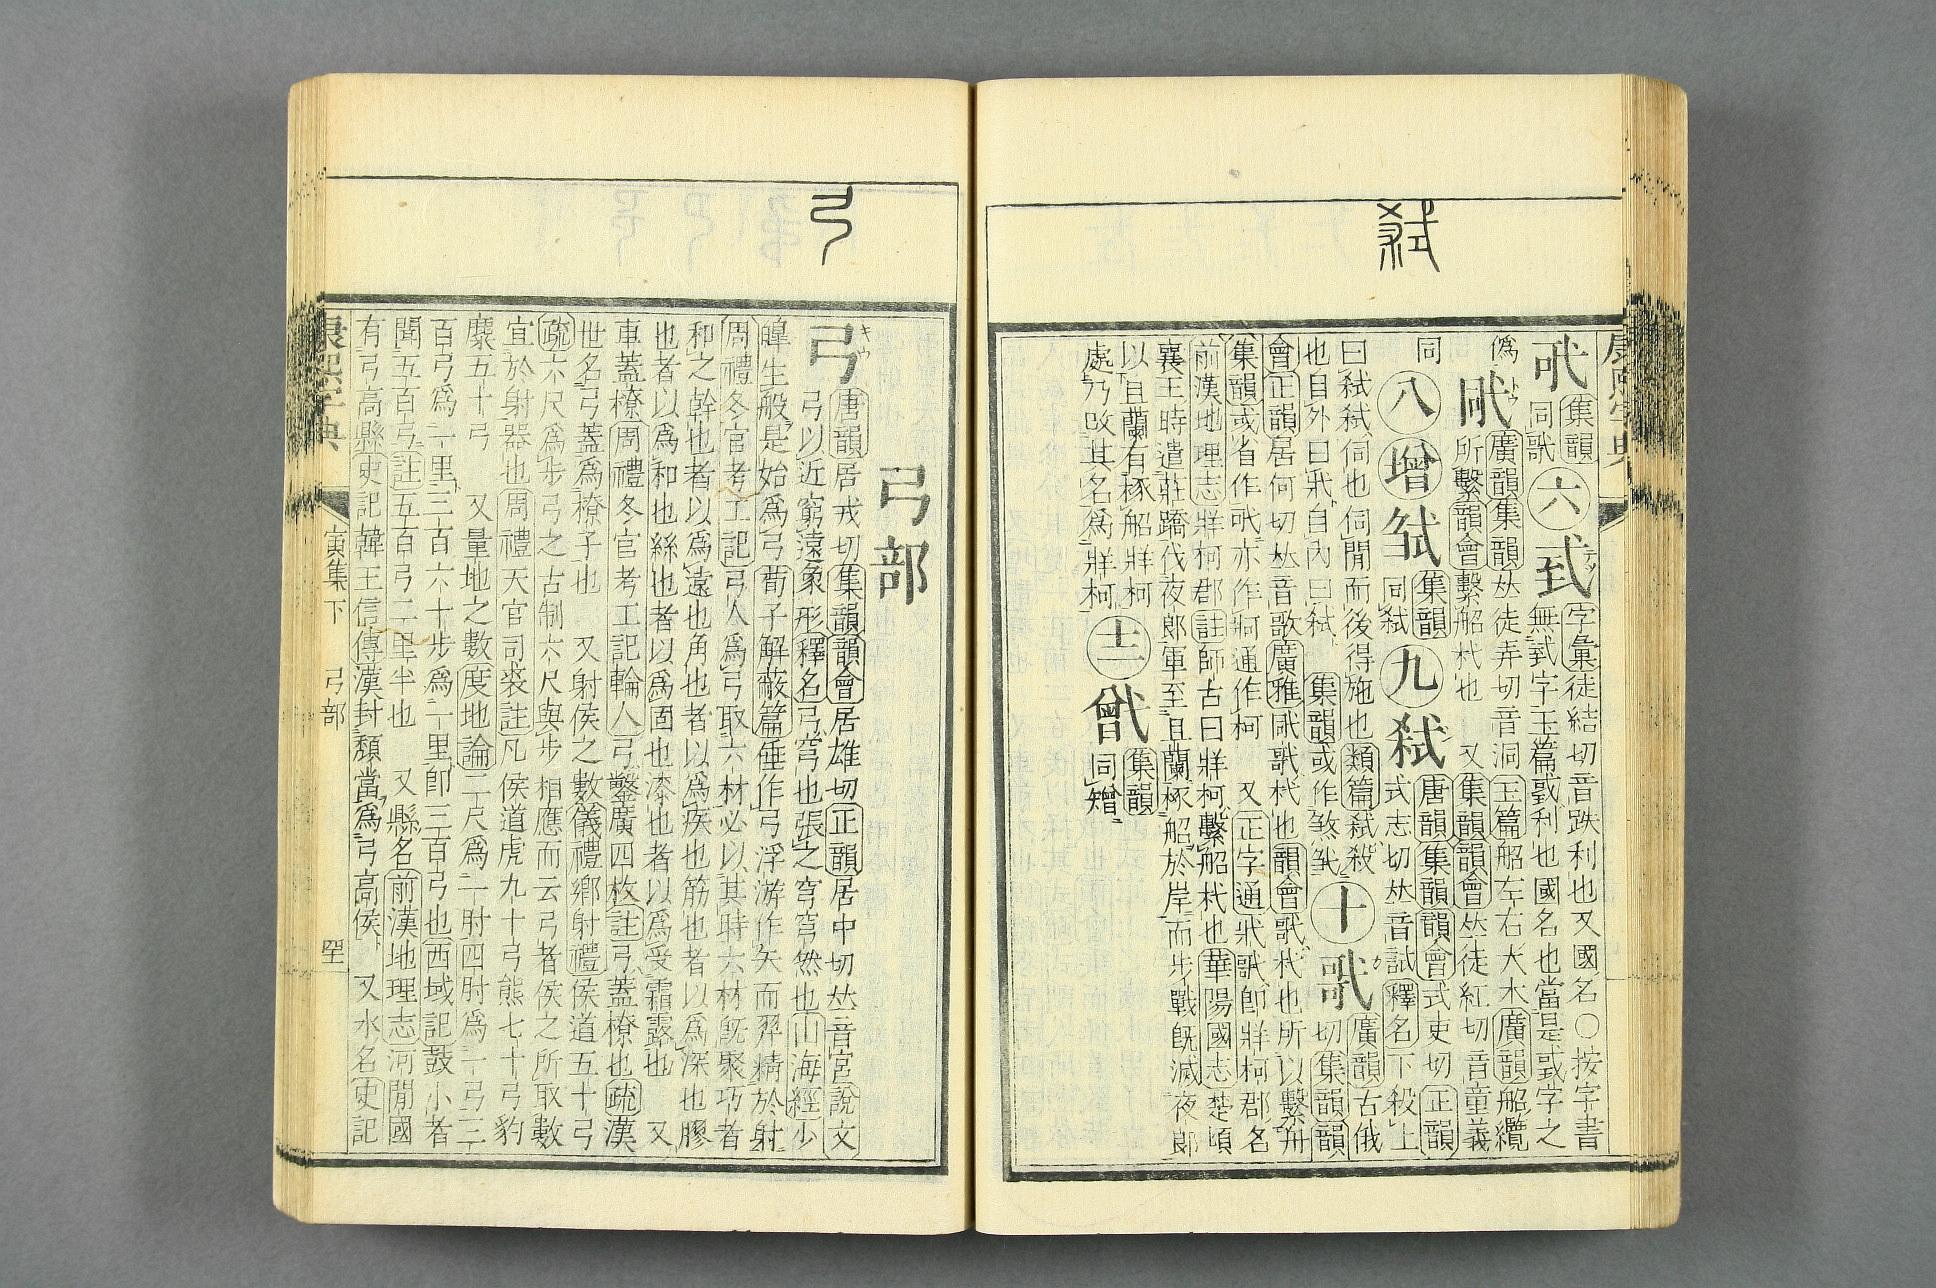 弑
康熙字典
集韻
同
六
字彙徒結切音跌利也又國名○按字書
無𢎐字玉篇𢧤利也國名也當是或字之
譌
廣韻集韻𠀤徒弄切音洞玉篇船左右大木廣韻船纜
所繫韻會繫船杙也 又集韻韻會𠀤徒紅切音童義
同
八
增
集韻
同弑
九
弑
唐韻集韻韻會式吏切正韻
式志切𠀤音試釋名下殺上
曰弑弑伺也伺閒而後得施也類篇弑殺
也自外曰戕自內曰弑 集韻或作煞
十
廣韻古俄
切集韻韻
會正韻居何切𠀤音歌廣雅戙㢦杙也韻會㢦杙也所以繫舟
集韻或省作 亦作牁通作柯 又正字通戕㢦卽牂柯郡名
前漢地理志牂柯郡註師古曰牂柯繫船杙也華陽國志楚頃
襄王時遣莊蹻伐夜郞軍至且蘭椓船於岸而步戰旣滅夜郞
以且蘭有椓船牂柯
處乃改其名爲牂柯
十二
集韻
同矰
弓
弓部
弓
キウ
唐韻居戎切集韻韻會居雄切正韻居中切𠀤音宮說文
弓以近窮遠象形釋名弓穹也張之穹穹然也山海經少
皥生般是始爲弓荀子解蔽篇倕作弓浮游作矢而羿精於射
周禮冬官考工記弓人爲弓取六材必以其時六材旣聚巧者
和之幹也者以爲遠也角也者以爲疾也筋也者以爲深也膠
也者以爲和也絲也者以爲固也漆也者以爲受霜露也 又
車蓋橑周禮冬官考工記輪人弓鑿廣四枚註弓蓋橑也疏漢
世名弓蓋爲橑子也 又射侯之數儀禮鄕射禮侯道五十弓
疏六尺爲步弓之古制六尺與步相應而云弓者侯之所取數
宜於射器也周禮天官司裘註凡侯道虎九十弓熊七十弓豹
麋五十弓 又量地之數度地論二尺爲一肘四肘爲一弓三
百弓爲一里三百六十步爲一里卽三百弓也西域記鼓小者
聞五百弓註五百弓二里半也 又縣名前漢地理志河閒國
有弓高縣史記韓王信傳漢封頹當爲弓高侯 又水名史記
康熙字典
寅集下
弓部